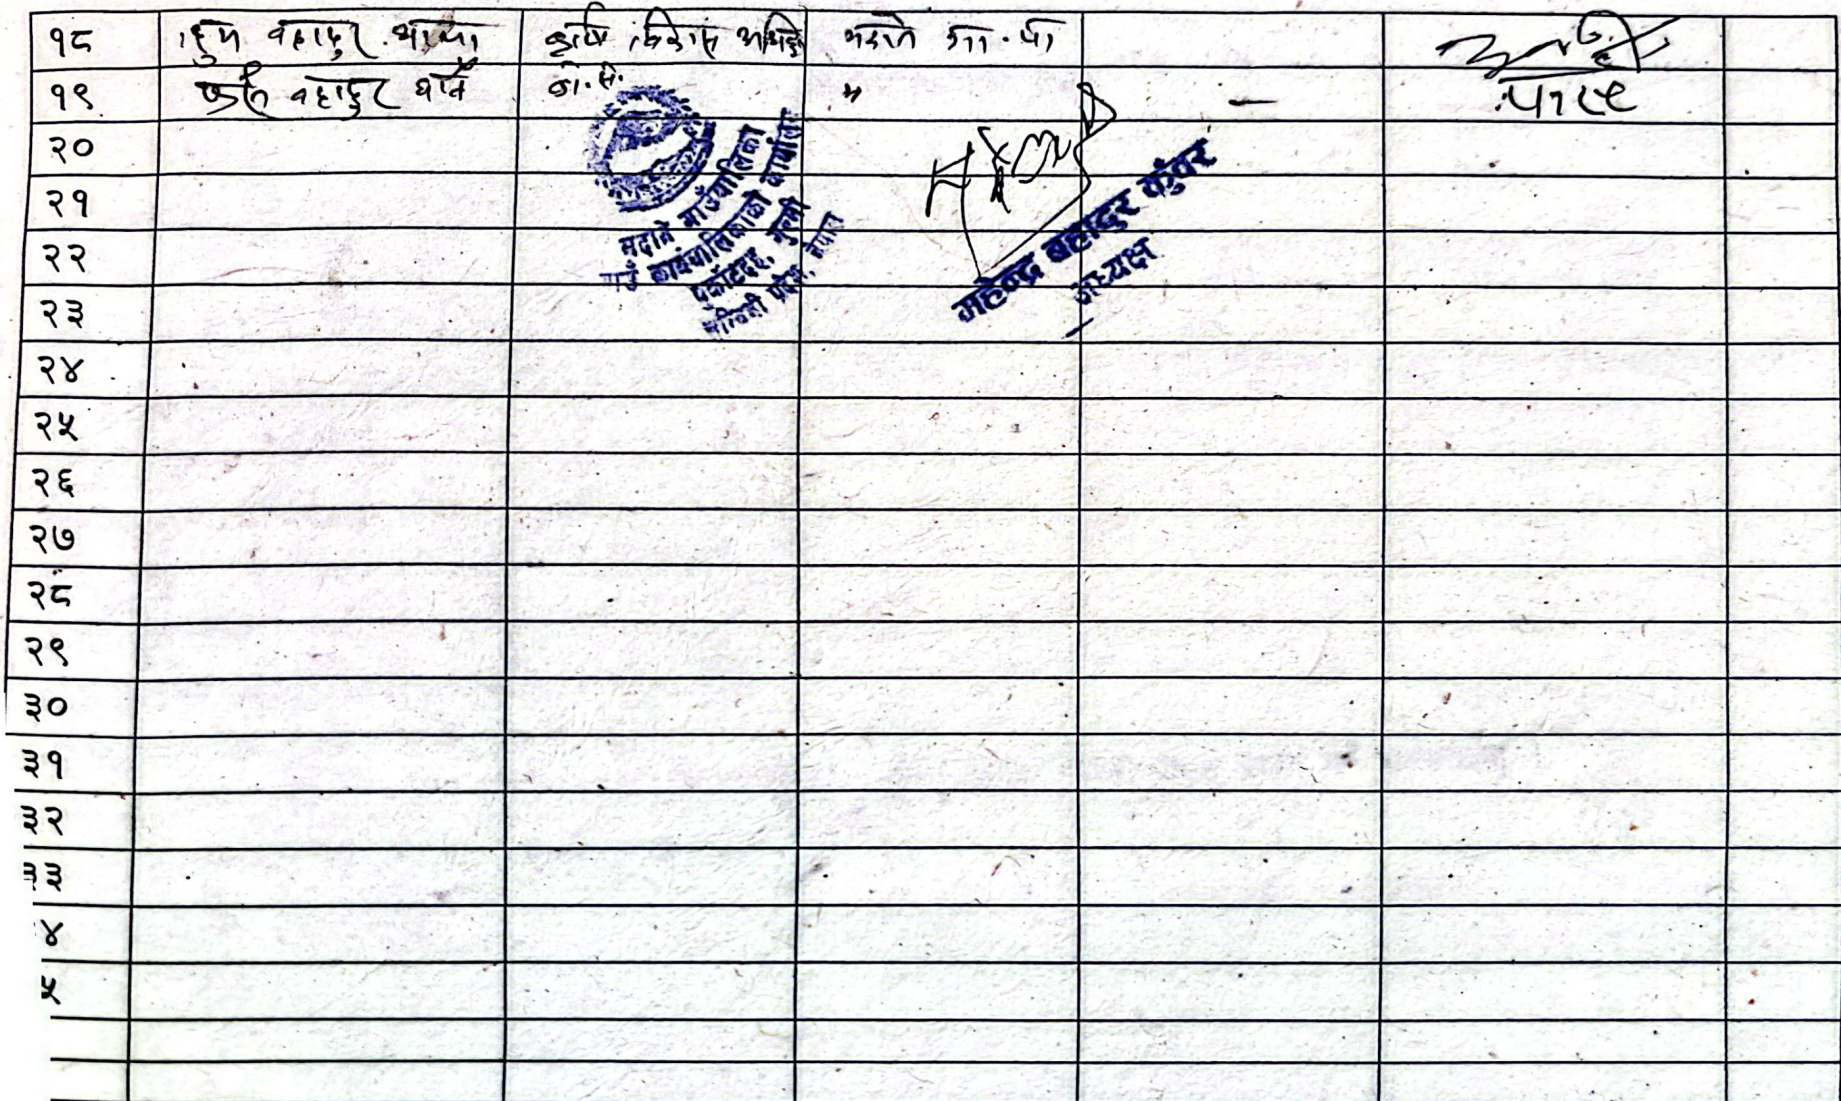 १८ हुम बहादुर थापा कृषि विकास मदाने गा.पा
१९ बहादुर का.स. "
२०
२१
२२
२३
२४
२५
२६
२७
२८
२९
३०
३१
३२
३३
४
५
मदाने गाउँपालिका
गाउँ कार्यपालिकाको कार्यालय
पुर्कोटदह, गुल्मी
लुम्बिनी प्रदेश, नेपाल
महेन्द्र बहादुर कुंवर
अध्यक्ष